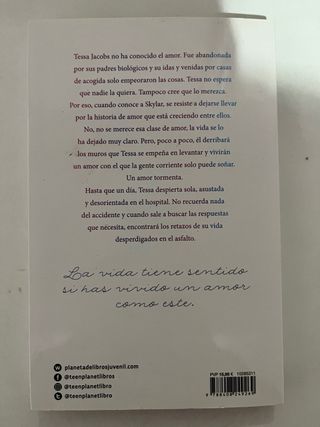 Tessa Jacobs no ha conocido el amor. Fue abandonada
por sus padres biológicos y su idas y venidas por casas
de acogida solo empeoraron las cosas. Tessa no espera
que nadie la quiera. Tampoco cree que lo merezca.
Por eso, cuando conoce a Skylar, se resiste a dejarse llevar
por la historia de amor que está creciendo entre ellos.
No, no se merece esa clase de amor, la vida se lo
ha dejado muy claro. Pero, poco a poco, él derribará
los muros que Tessa se empeña en levantar y vivirán
un amor con el que la gente corriente solo puede soñar.
Un amor tormenta.
Hasta que un día, Tessa despierta sola, asustada
y desorientada en el hospital. No recuerda nada
del accidente y cuando sale a buscar las respuestas
que necesita, encontrará los retazos de su vida
desperdigados en el asfalto.
La vida tiene sentido
si has vivido un amor
como este.
planetadelibrosjuvenil.com
@teenplanetlibros
@teenplanetlibro
@teenplanetlibro
PVP 15,95 € 10285211
9 788408 249269